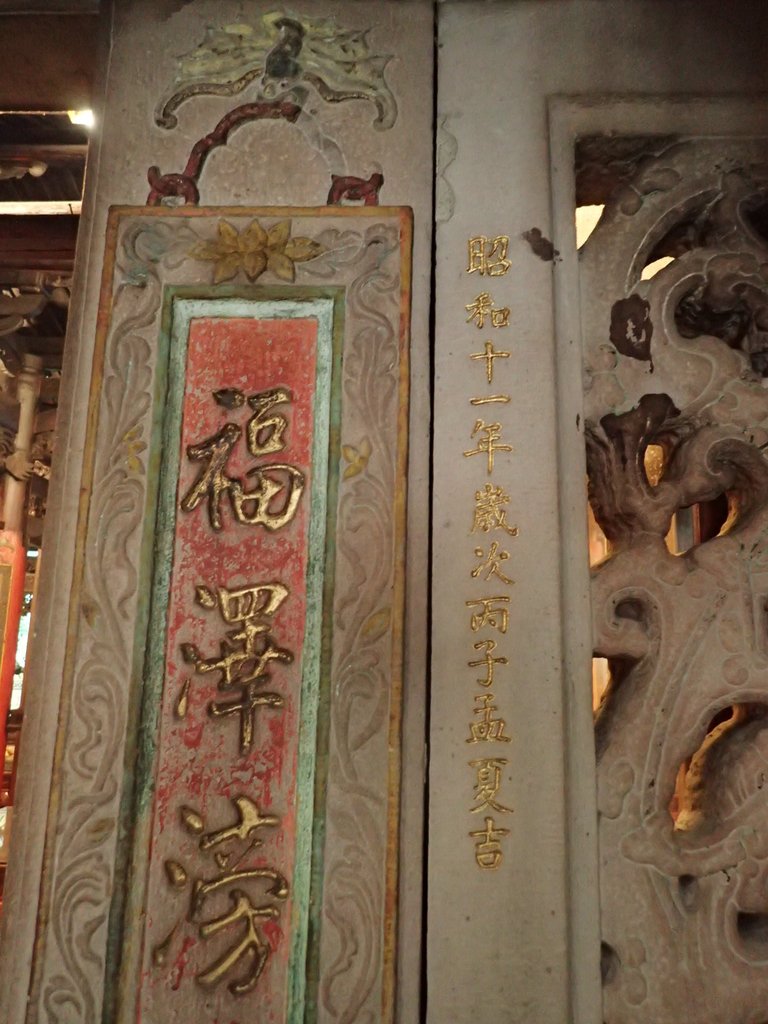 昭和十一年歲次丙子孟夏吉
福澤滂